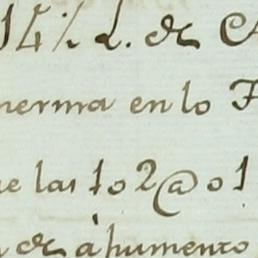 14 % L. de
merma en lo
e las 10 2@ 01
de à humento